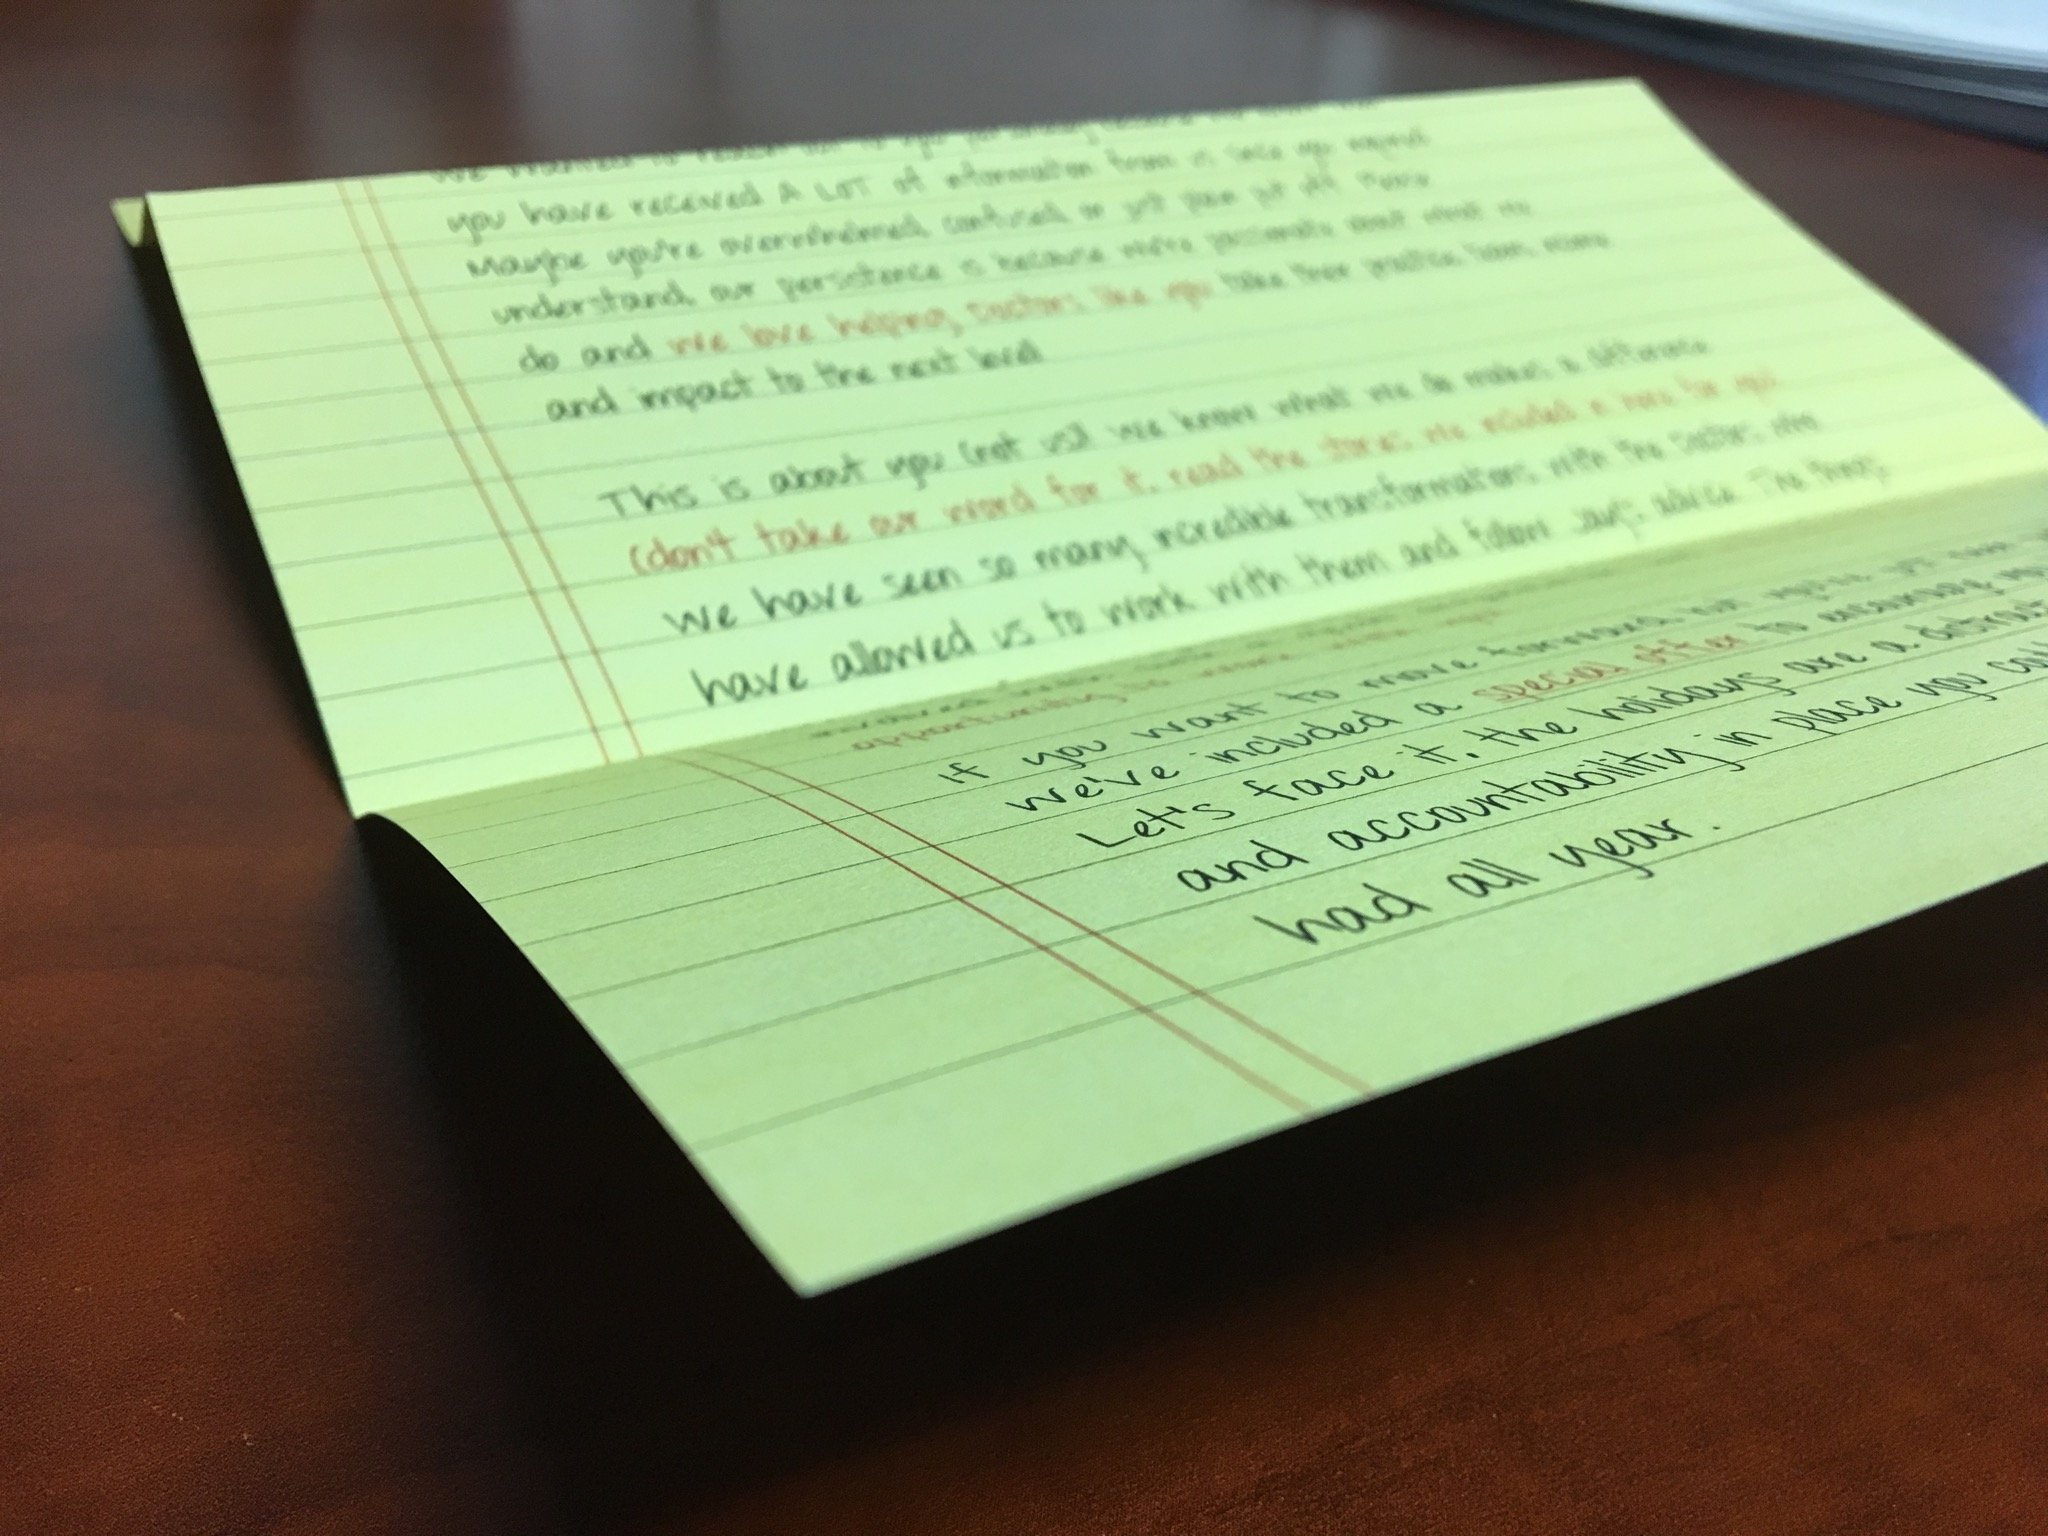 We wanted to reach out to you
you have received A LOT of information from us since you
Maybe you're overwhelmed, confused or just plain put off. Please
understand, our persistence is because we're passionate about what we
do and we love helping doctors like you take their practice, team, income
and impact to the next level.
This is about you (not us)! We know what we do makes a difference
(don't take our word for it, read the stories we included in here for you).
We have seen so many incredible transformations with the doctors who
have allowed us to work with them and follow Jay's advice. The things
opportunity
If you want to move forward, but
we've included a special offer to encourage you
Let's face it, the holidays are a
and accountability in place you
had all year.